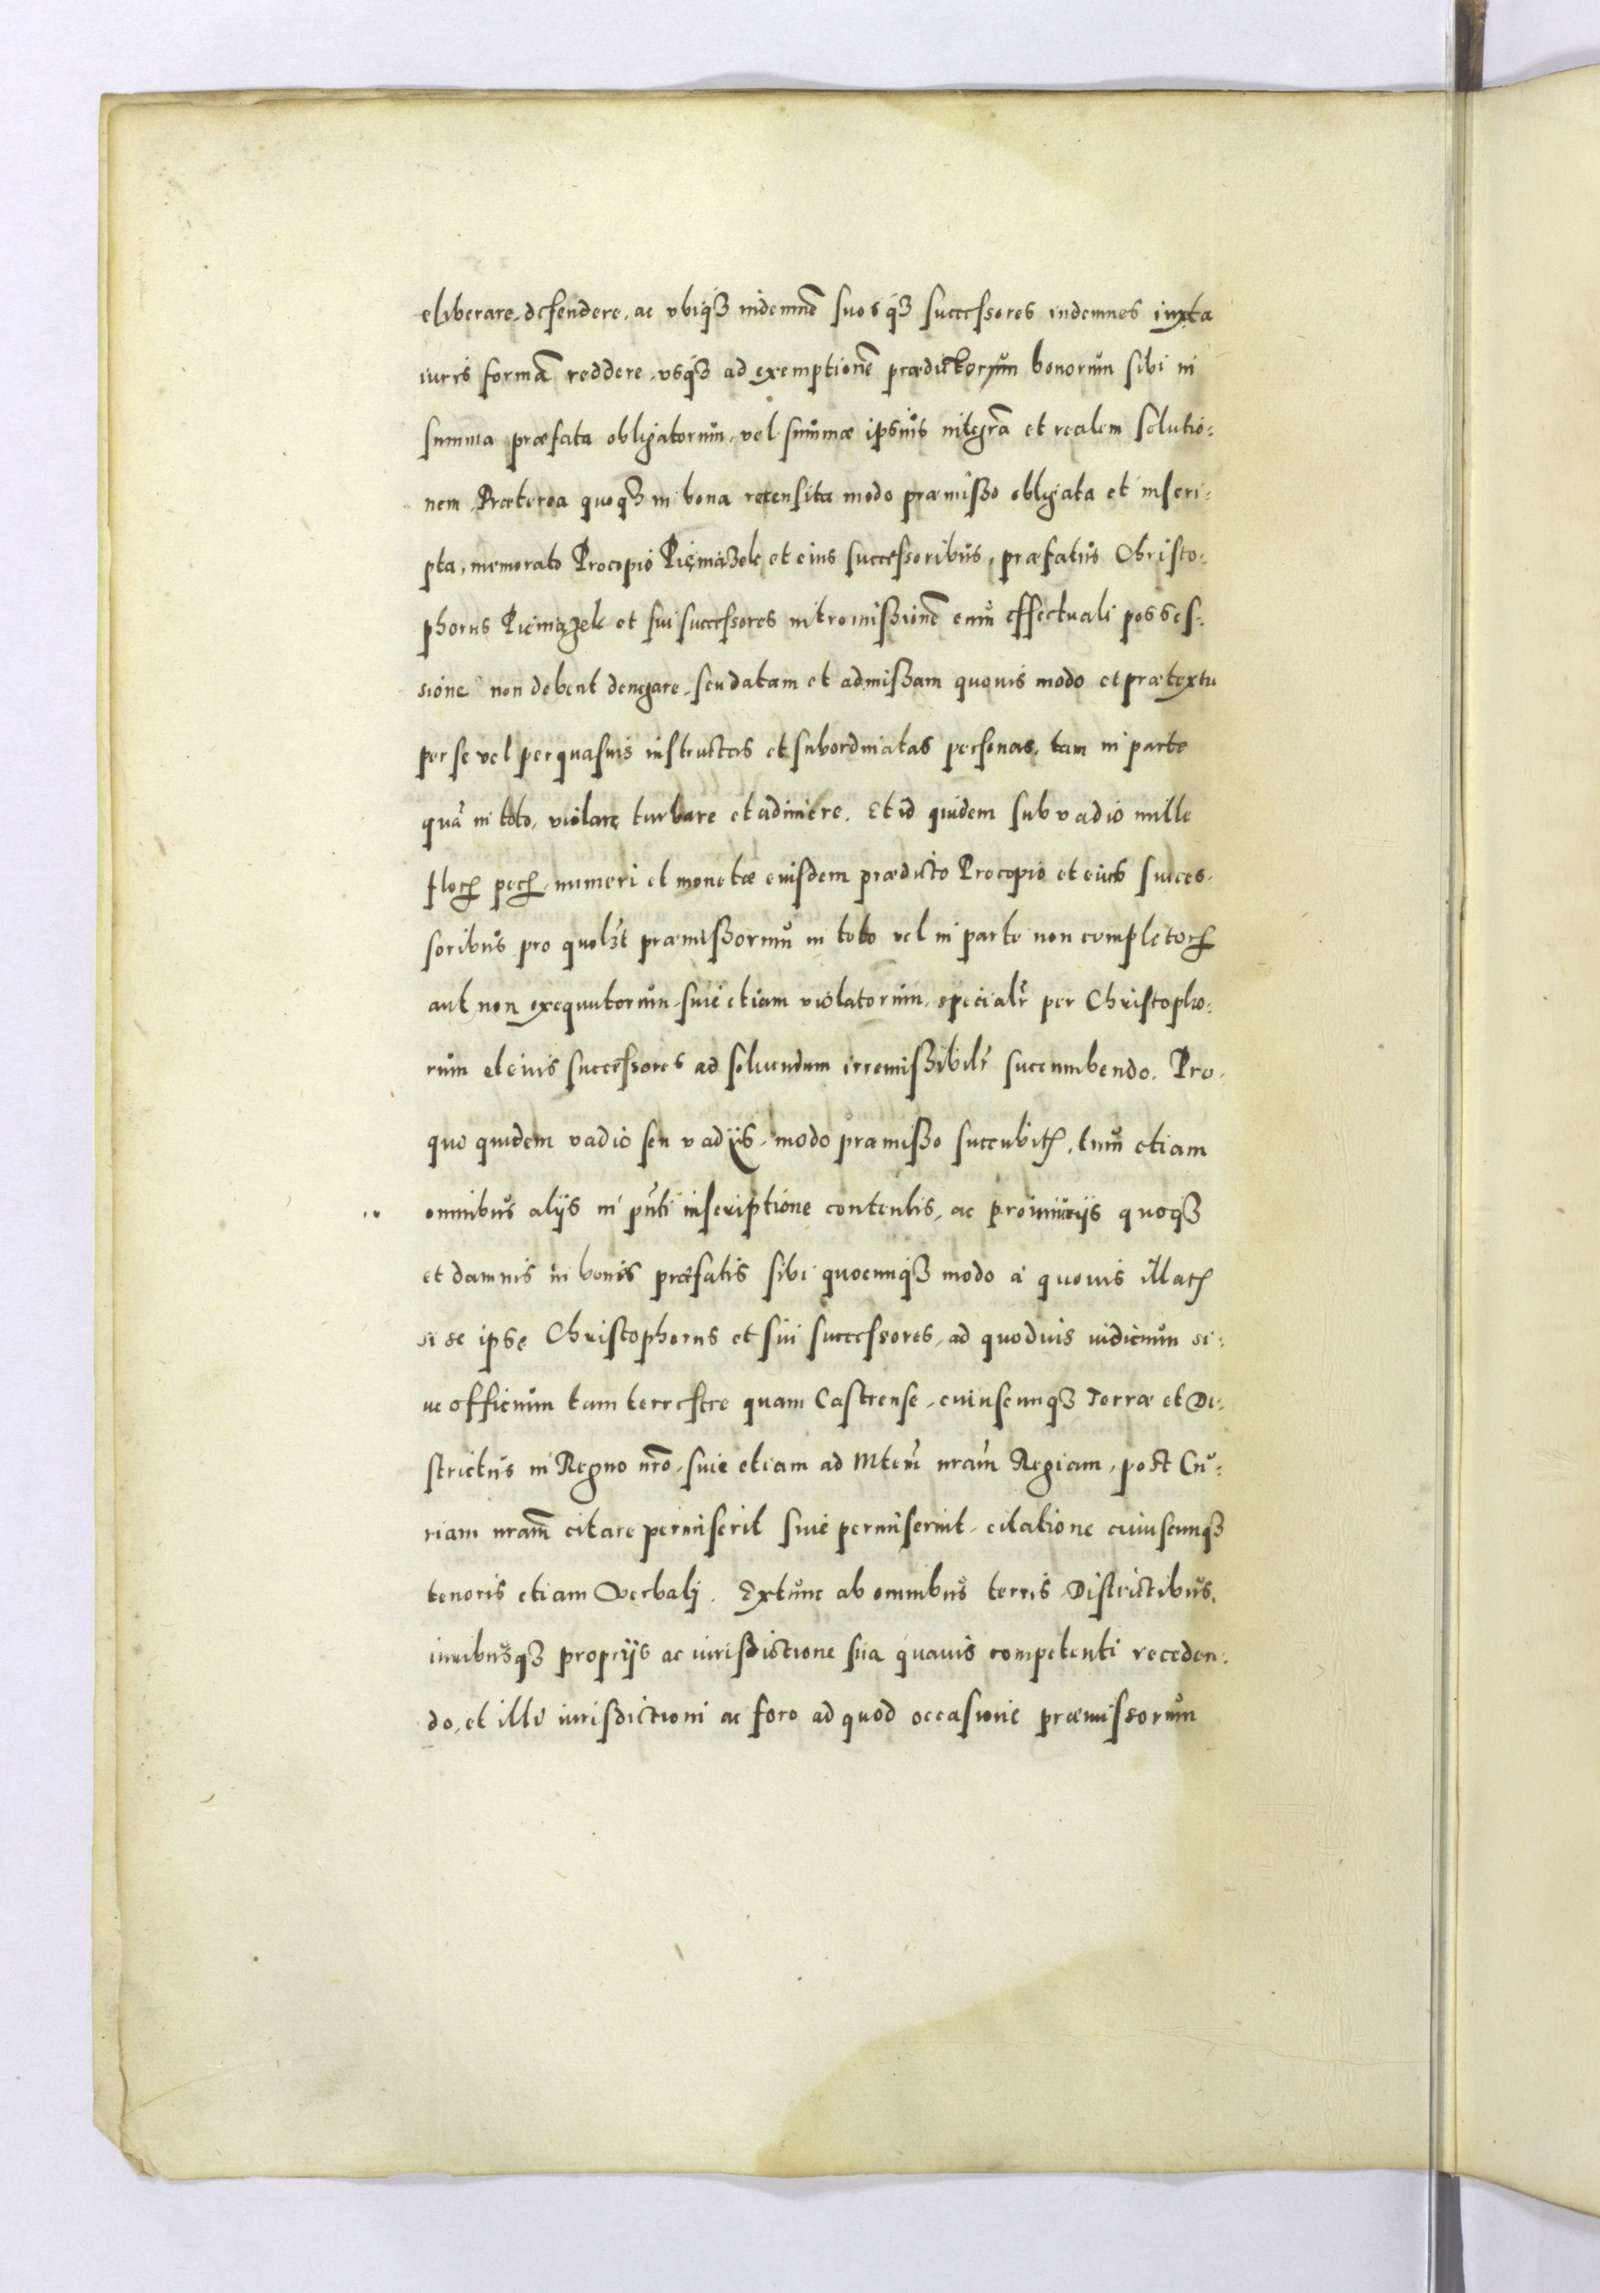 eliberare, defendere, ac vbiq3 indemnē suosq3 successores indemnes iuxta
iuris formā reddere, vsq3 ad exemptionē prædictorum bonorum sibi in
summa præfata obligatorum, vel summæ ipsius integrā et realem solutio:
nem. Præterea quoq3 in bona recensita modo præmisso obligata et inscri:
pta, memorato Procopio Pięniążek et eius successoribus, præfatus Christo:
phorus Pieniążek et sui successores intromissionē cum effectuali posses:
sione non debent denegare, seu datam et admissam quouis modo et prætextu
per se vel per quasuis instructas et subordinatas personas, tam in parte
quā in toto, violare turbare et adimere. Et id quidem sub vadio mille
floren pecun numeri et monetæ eiusdem prædicto Procopio et eius succes:
soribus pro quolȝt præmissorum in toto vel in parte non completor
aut non exequutorum, siue etiam violatorum, specialr per Christopho:
rum et eius successores ad soluendum irremissibilr succumbendo. Pro
quo quidem vadio seu vadijs, modo præmisso succubit, tum etiam
omnibus alijs in pnti inscriptione contentis, ac pro iniurijs quoq3
et damnis in bonis præfatis sibi quocunq3 modo à quouis illat
si se ipse Christophorus et sui successores, ad quoduis iudicium si:
ue officium tam terrestre quam Castrense, cuiuscunq3 Terræ et Di:
strictus in Regno nro, siue etiam ad Mtem nram Regiam, post Cu:
riam nram citare permiserit siue permiserint, citatione cuiuscunq3
tenoris etiam Verbali. Extunc ab omnibus terris Districtibus,
iuribusq3 proprijs ac iurisdictione sua quauis competenti receden:
do, et illi iurisdictioni ac foro ad quod occasione præmissorum